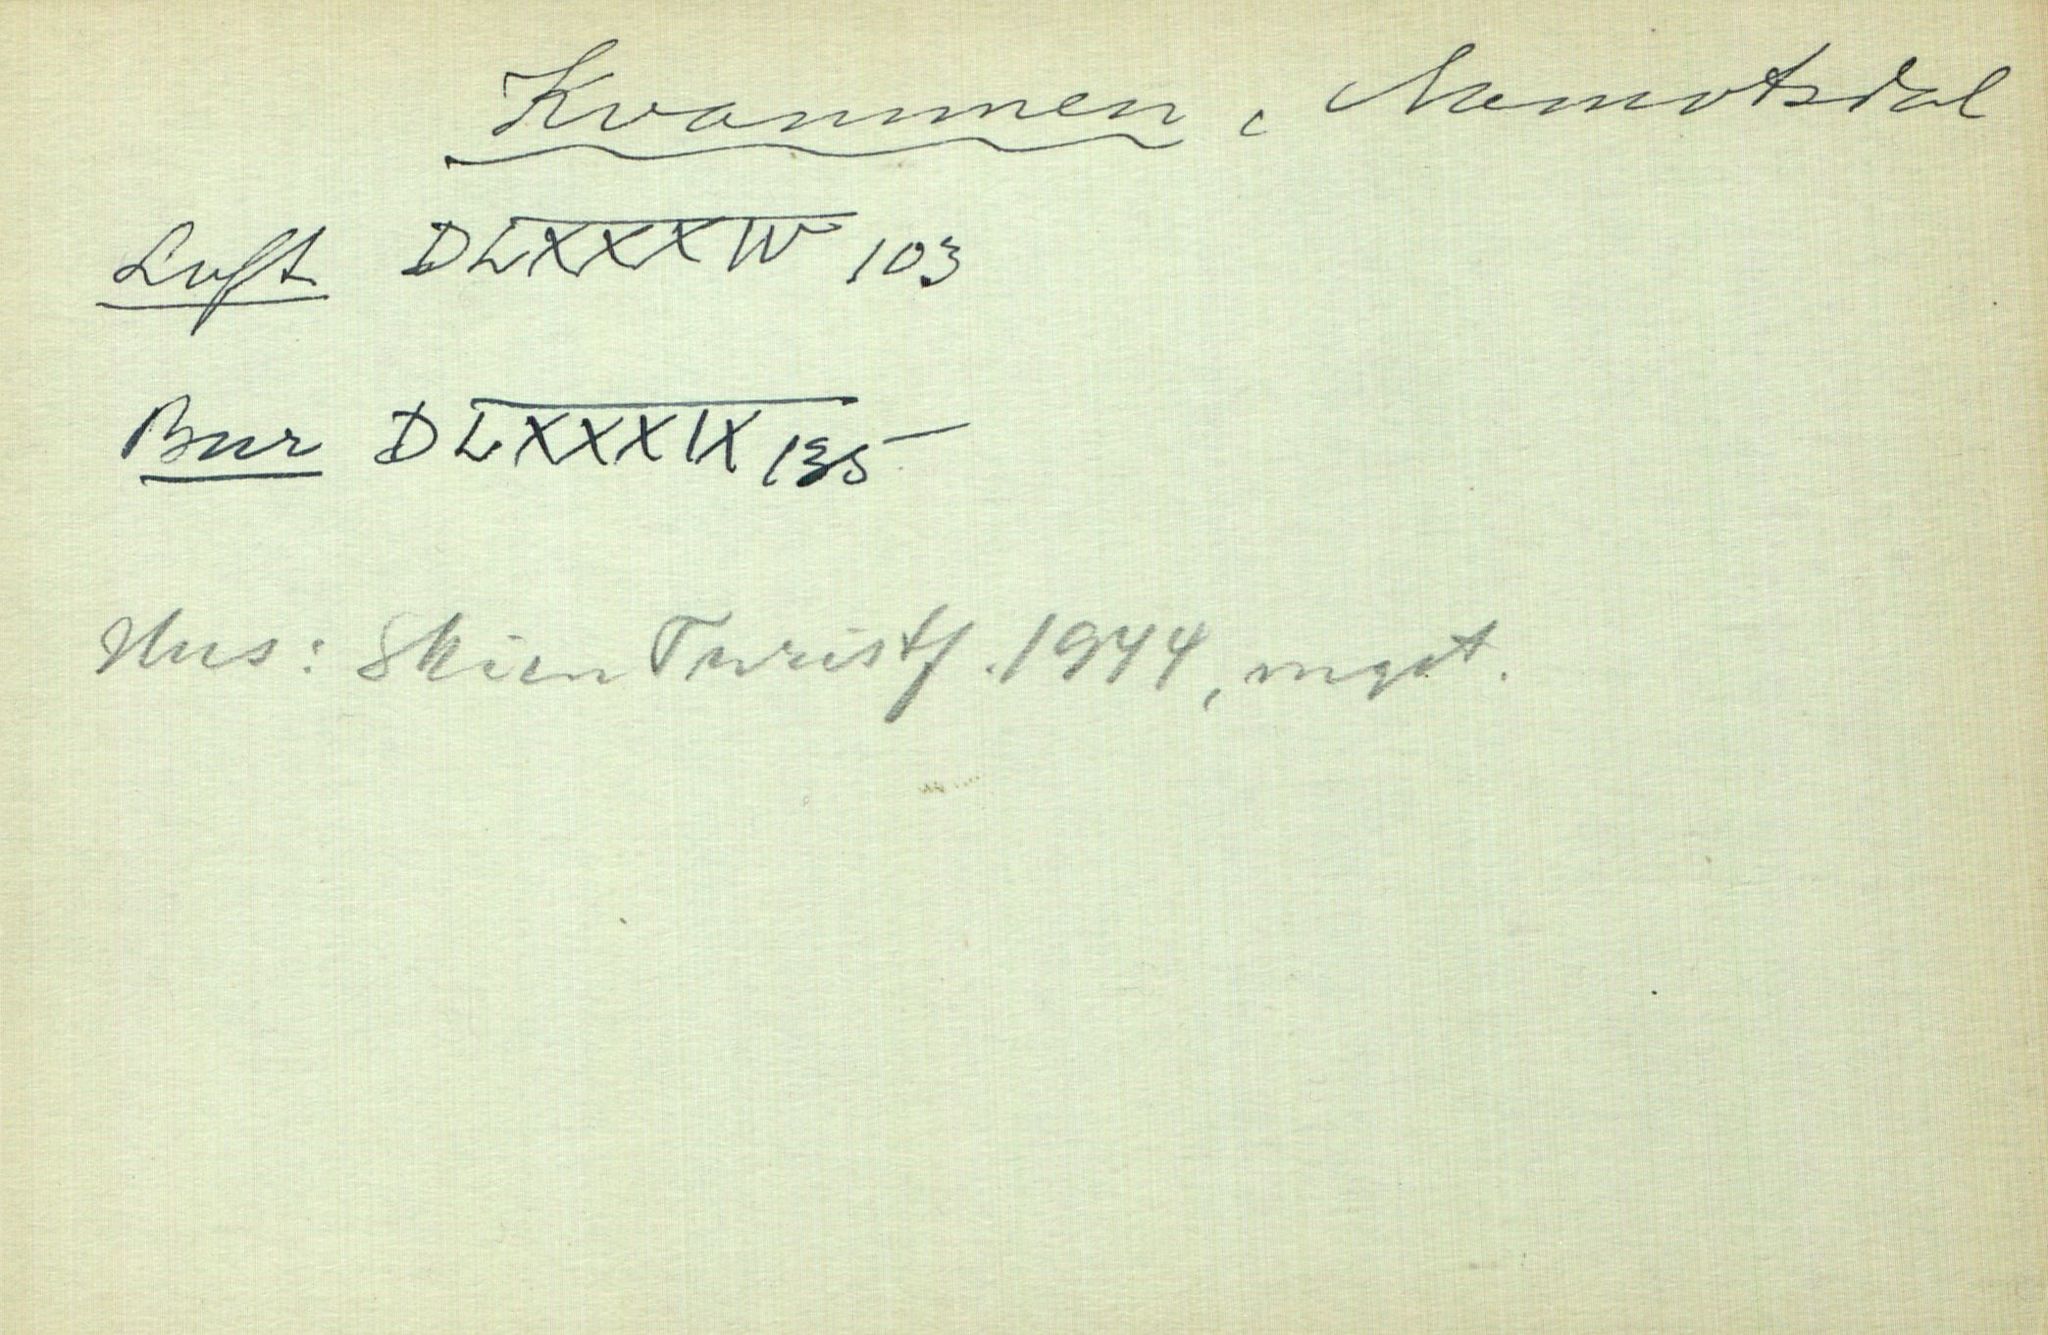 Kvammen, Aamotsdal
Luft DLXXXIV 103
Bur DLXXXIX 135
Hus: Skien Turistf. 1944, mgst.